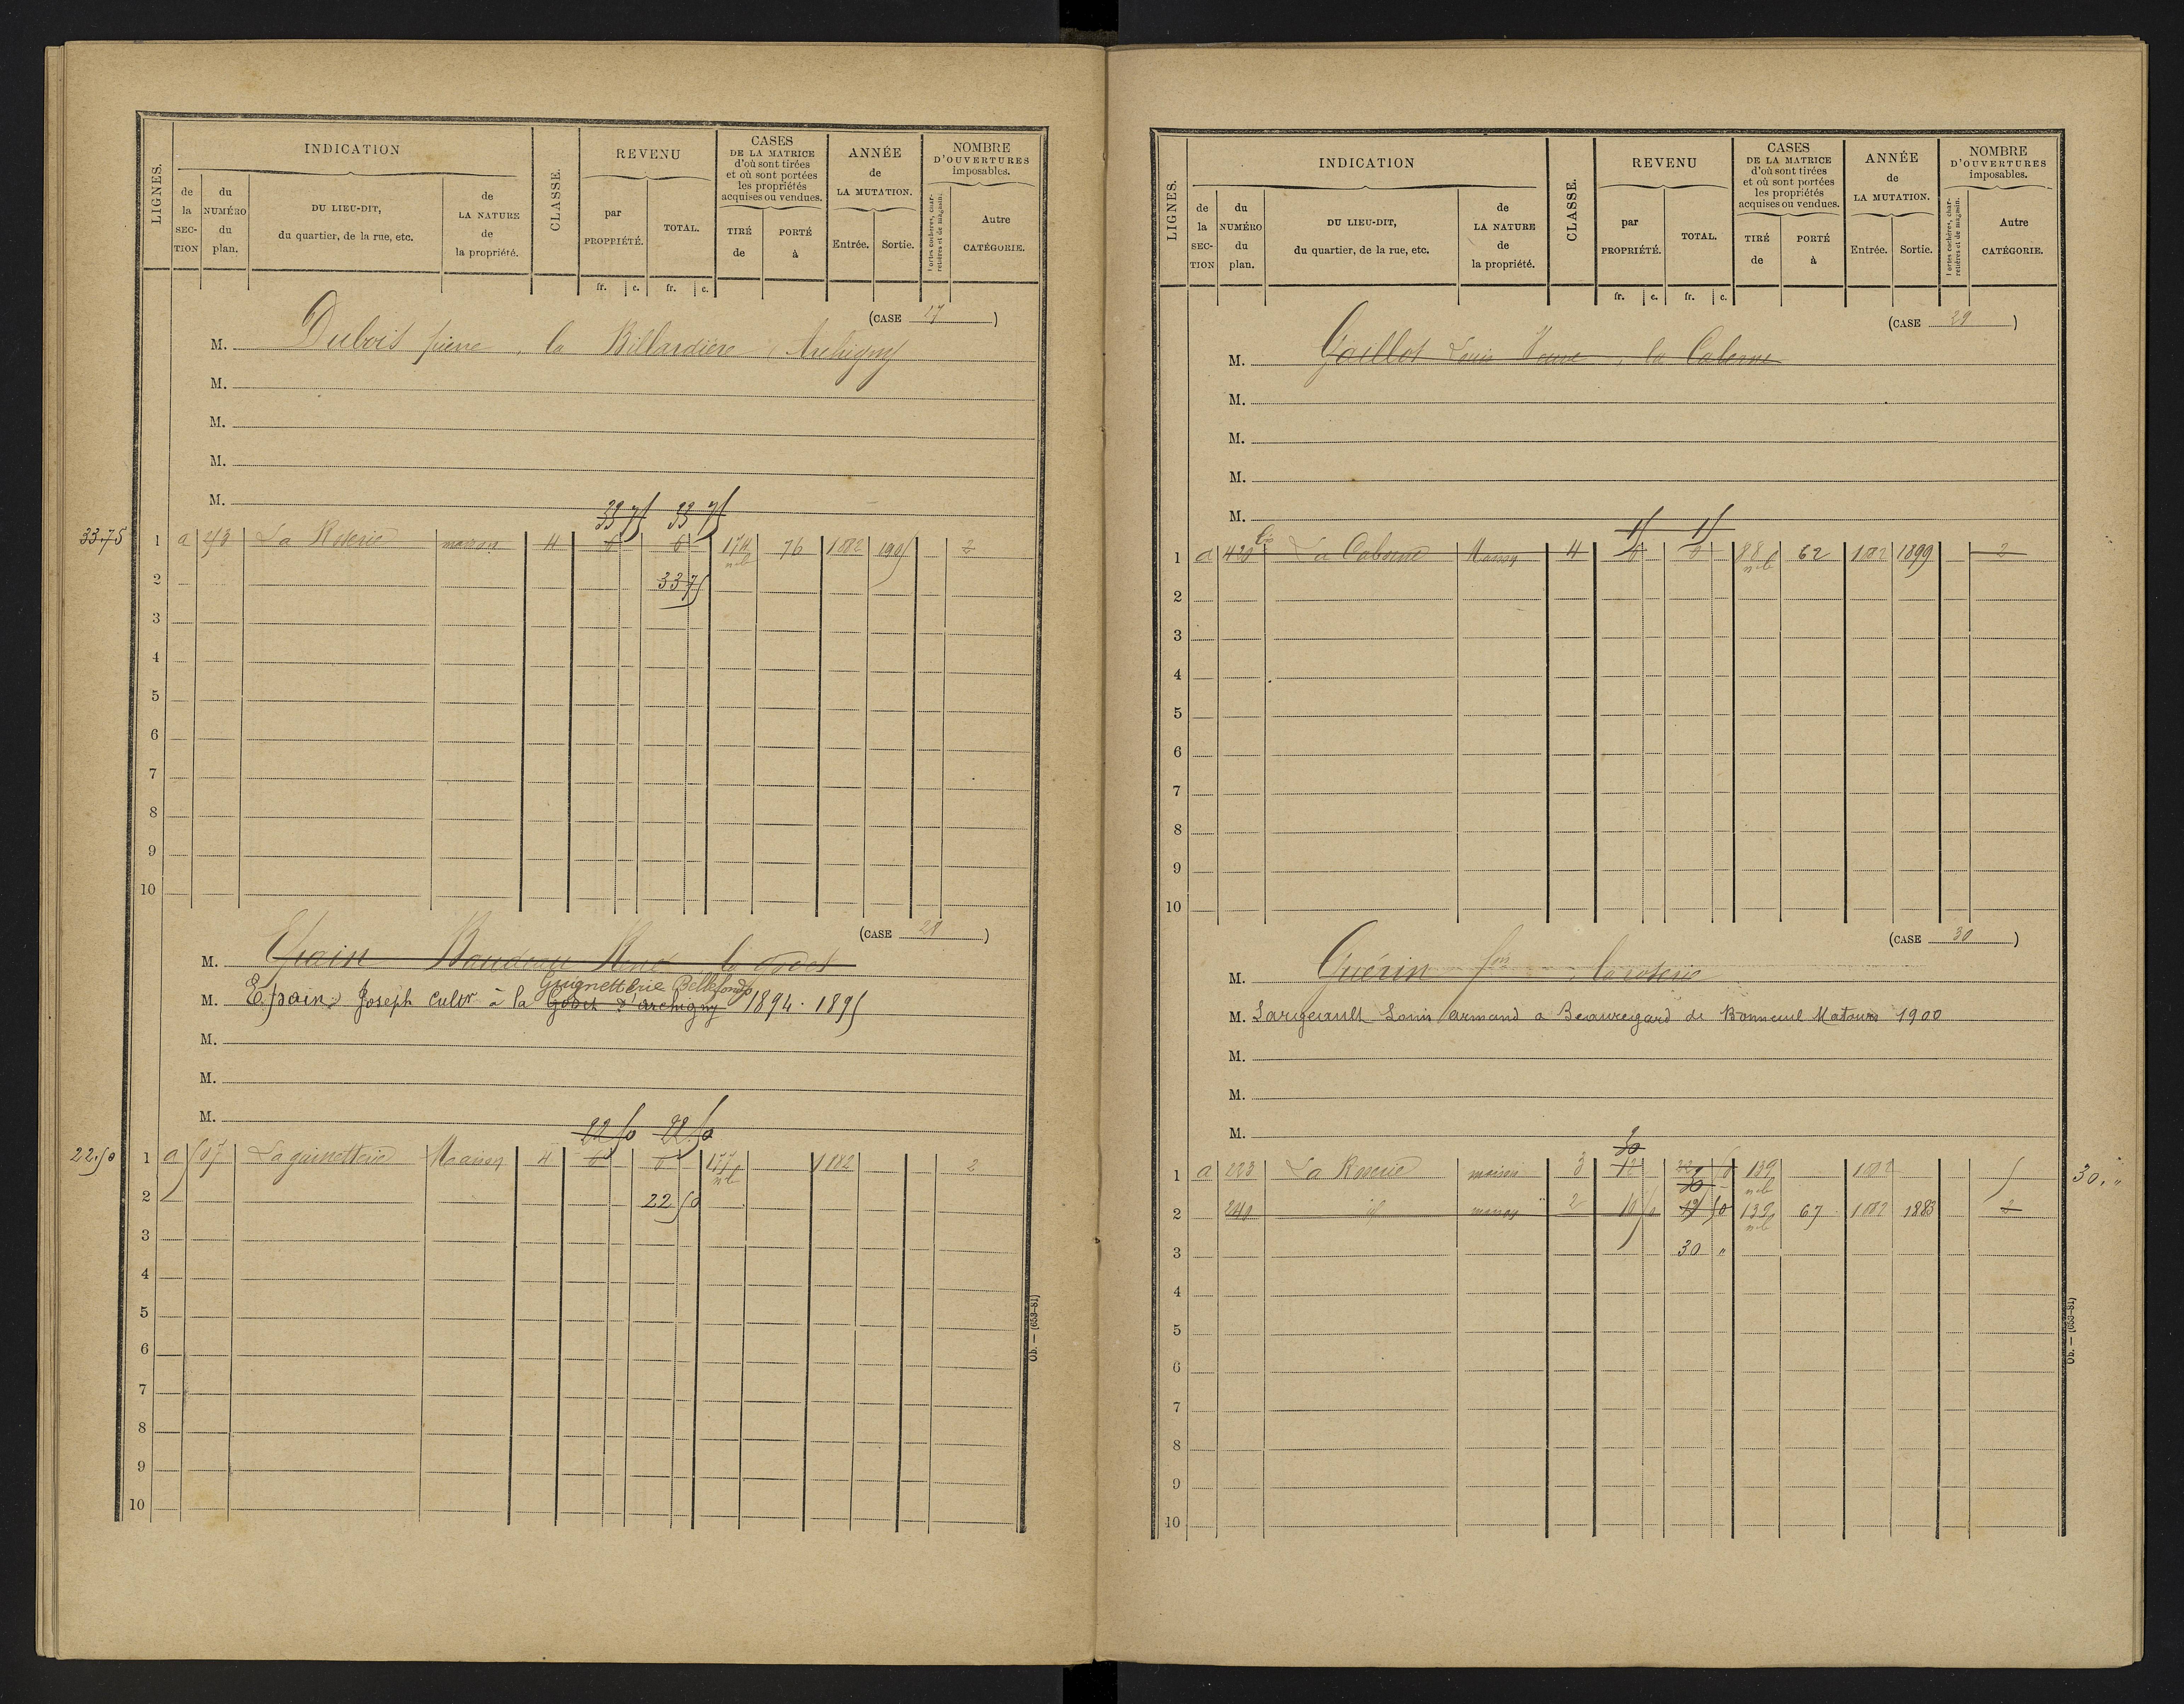 LIGNES. INDICATION CLASSE. REVENU CASES DE LA MATRICE d'où sont tirées et où sont portées les propriétés acquises ou vendues. ANNÉE de LA MUTATION. NOMBRE D'OUVERTURES imposables.
de la SECTION du NUMÉRO du plan. DU LIEU-DIT, du quartier, de la rue, etc. de LA NATURE de la propriété. par PROPRIÉTÉ. TOTAL. TIRÉ de PORTÉ à Entrée. Sortie. Portes cochères, charretières et de magasin. Autre CATÉGORIE.
fr. c. fr. c.
(CASE 27)
M. Dubois pierre, la Billardiere Archigny
M.
M.
M.
M.
33 75 33 75
33.75 1 a La Roserie maison 4 6 6 174 76 1882 1905 2
2 33 75
3
4
5
6
7
8
9
10
(CASE 28)
M. René la Godet
Guignetterie Bellefonds
M. Epain Joseph cultr à la Godet d'archigny 1894. 1895
M.
M.
M.
22 50 22 50
22.50 1 a 507 La guinetterie Maison 4 6 6 177 1882 2
2 22 50
3
4
5
6
7
8
9
10
Ob. — (653-81)
LIGNES. INDICATION CLASSE. REVENU CASES DE LA MATRICE d'où sont tirées et où sont portées les propriétés acquises ou vendues. ANNÉE de LA MUTATION. NOMBRE D'OUVERTURES imposables.
de la SECTION du NUMÉRO du plan. DU LIEU-DIT, du quartier, de la rue, etc. de LA NATURE de la propriété. par PROPRIÉTÉ. TOTAL. TIRÉ de PORTÉ à Entrée. Sortie. Portes cochères, charretières et de magasin. Autre CATÉGORIE.
fr. c. fr. c.
(CASE 29)
M. Gaillot Louis la Caborne
M.
M.
M.
M.
15 15
1 a 420 bis La Caborne Maison 4 6 6 88 62 1882 1899 2
2
3
4
5
6
7
8
9
10
(CASE 30)
M. Guérin fois la roserie
M. Sargeault Louis armand a Beauregard de Bonneuil Matours 1900
M.
M.
M.
30
1 a 223 La Roserie maison 3 12 22 50 139 1882 5 30. "
2 240 id maison 2 10 50 139 67 1882 1883 2
3 30 "
4
5
6
7
8
9
10
Ob. — (653-81)